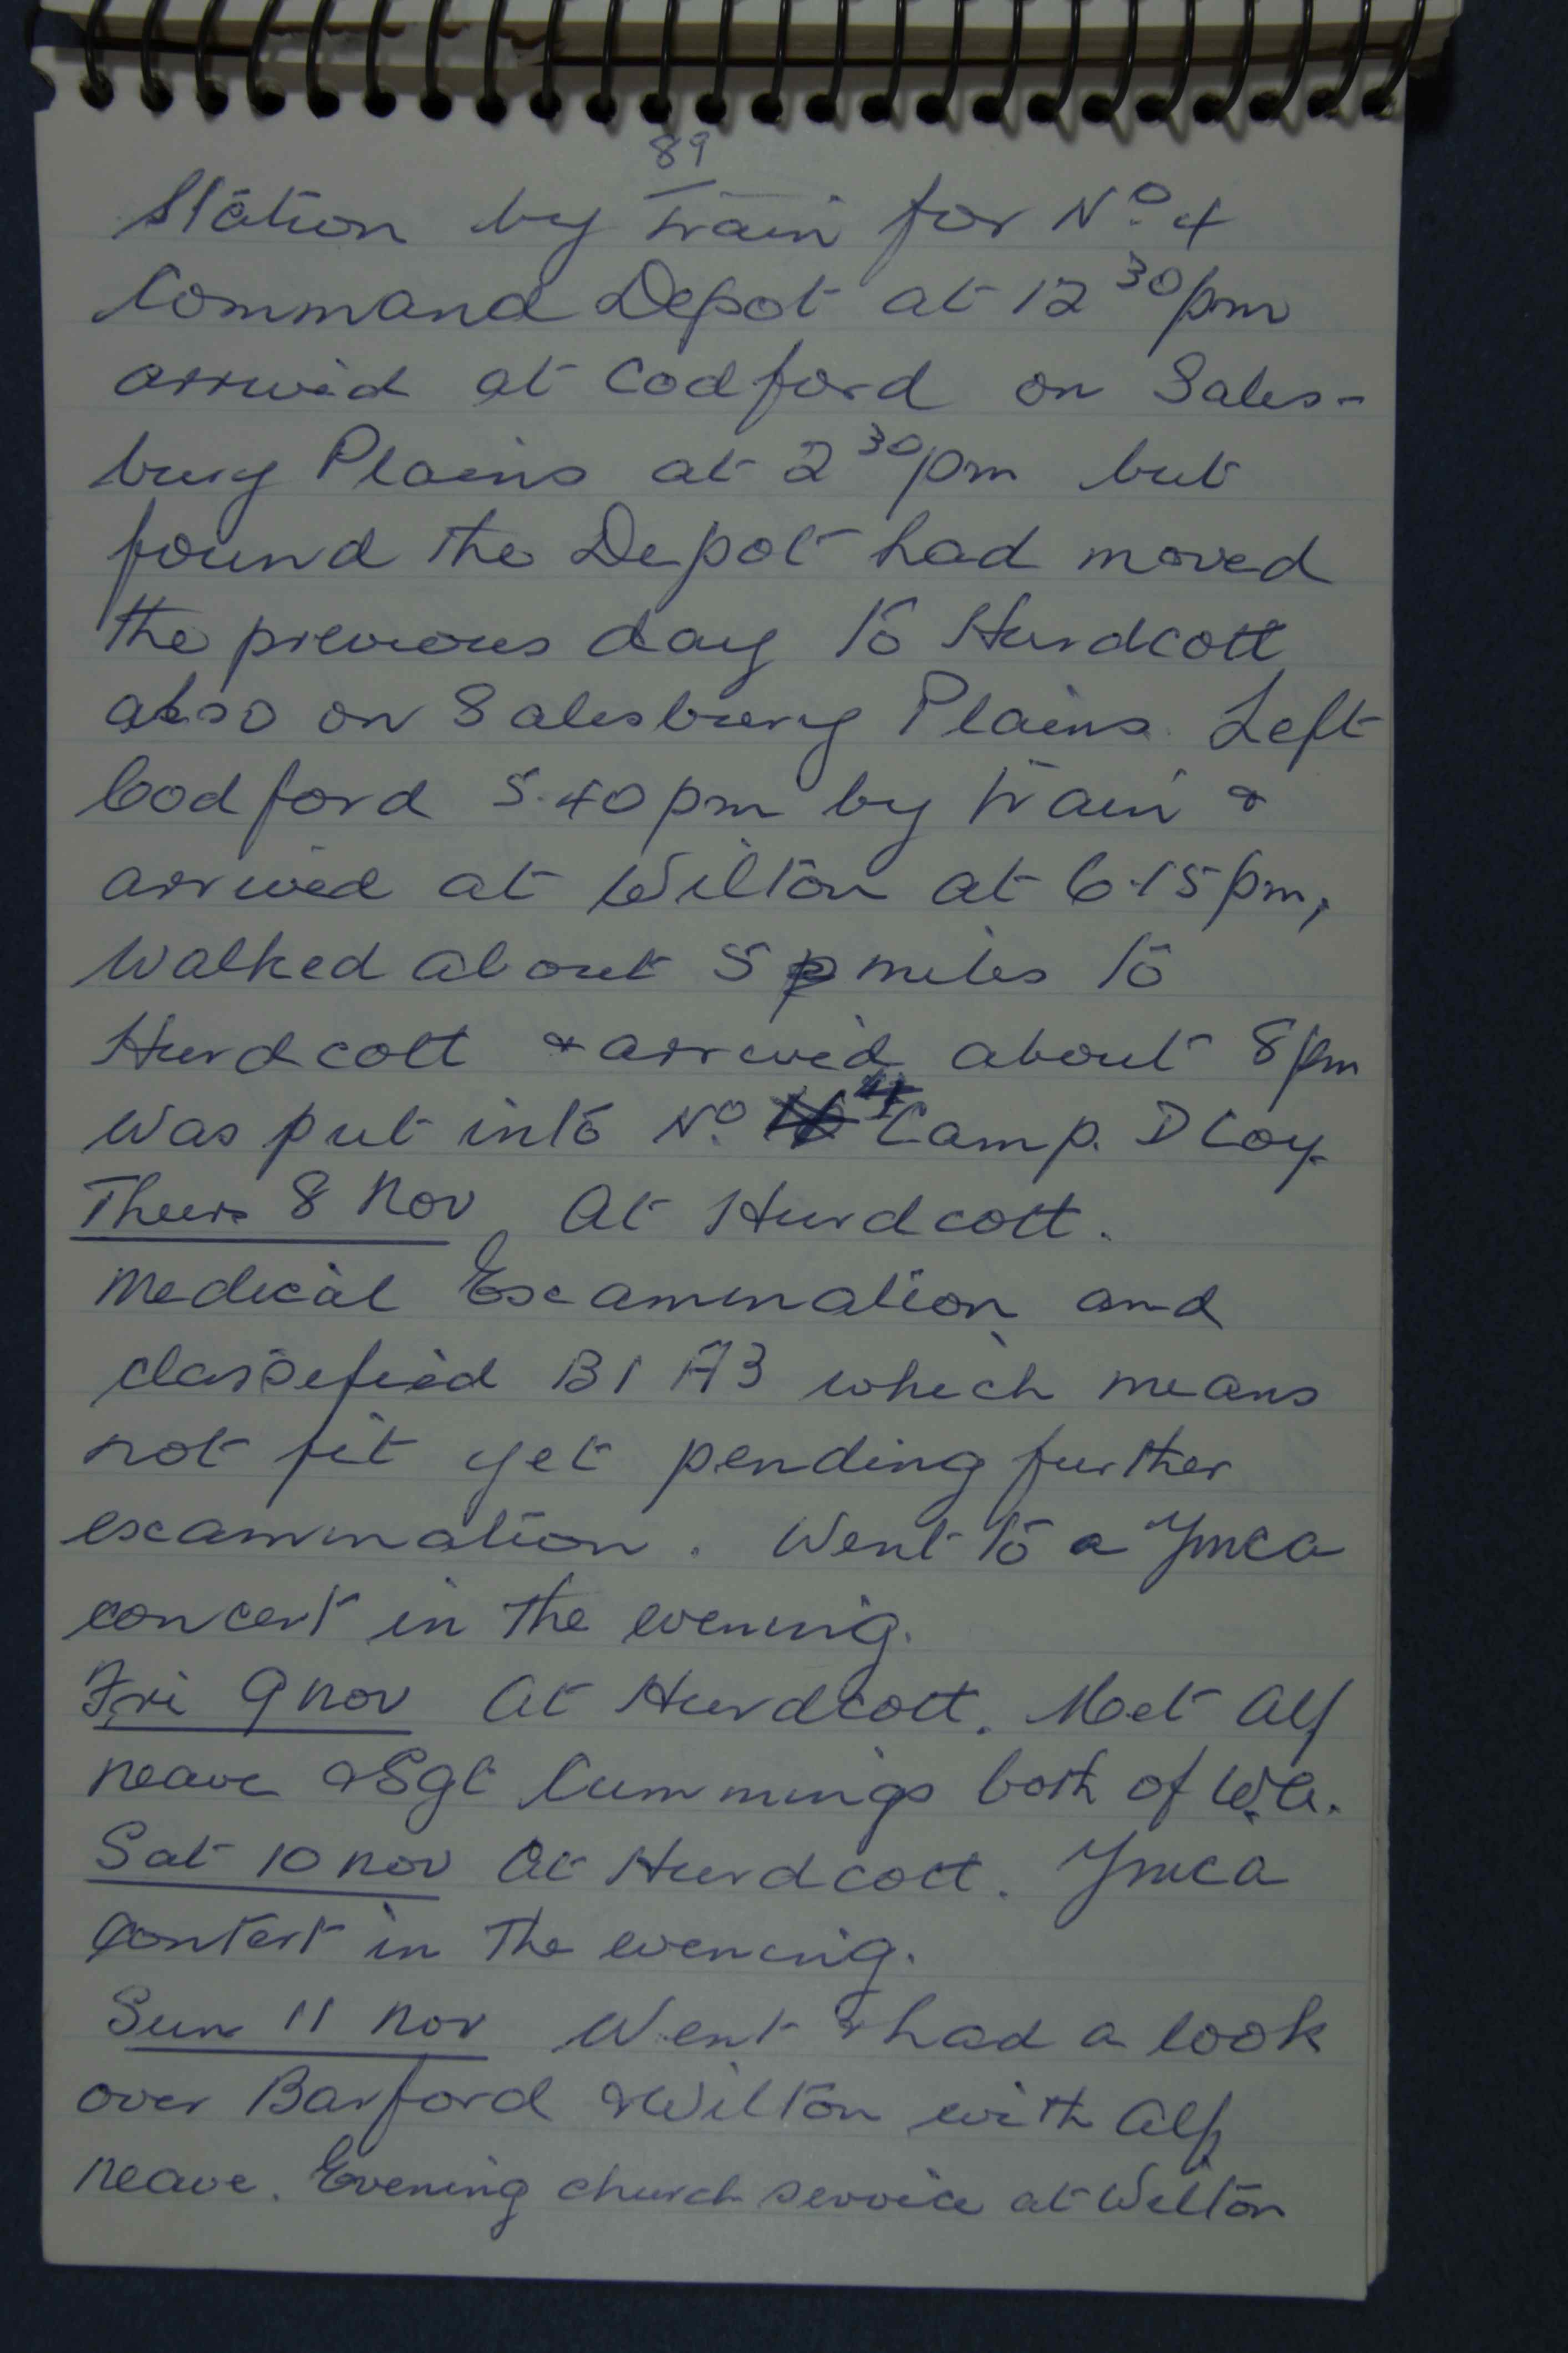 89
Station by train for No. 4
Command Depot at 12 30 pm
arrived at Codford on Sales-
bury Plains at 2 30 pm but
found the Depot had moved
the previous day to Hurdcott
also on Salesbury Plains. Left
Codford 5.40 pm by train &
arrived at Wilton at 6.15 pm,
walked about 5 miles to
Hurdcott & arrived about 8 pm
was put into No. 4 Camp. D Coy.
Thurs 8 Nov At Hurdcott.
Medical Examination and
classified B1 A3 which means
not fit yet pending further
examination. Went to a Ymca
concert in the evening.
Fri 9 Nov At Hurdcott. Met Alf
Neave & Sgt Cummings both of W.A.
Sat 10 Nov At Hurdcott. Ymca
Contert in the evening.
Sun 11 Nov Went & had a look
over Barford & Wilton with Alf
Neave. Evening church service at Wilton